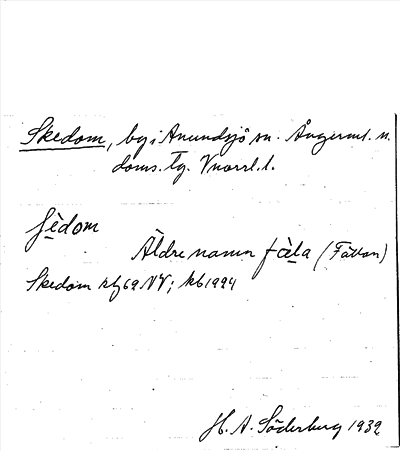 Skedom, by i Anundsjö sn. Ångerml. n.
doms. Tg. Vnorrl. l.
ʃèdom
Äldre namn fàla (Fattan)
Skedom kbl 69 NV; kb 1994
H. A. Söderberg 1932